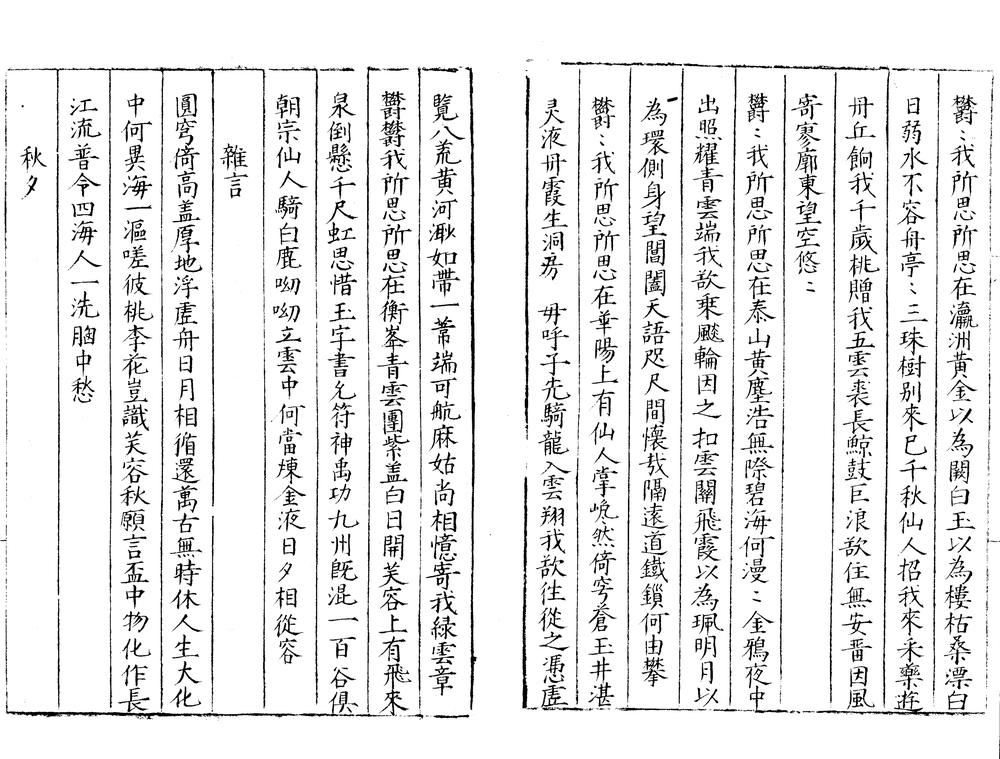 欝〻我所思所思在瀛洲黄金以為闕白玉以為樓枯桑漂白
日弱水不容舟亭〻三珠樹别來已千秋仙人招我來采藥遊
丹丘餉我千歲桃贈我五雲裘長鯨鼓巨浪欲住無安畨因風
寄寥廓東望空悠〻
欝〻我所思所思在泰山黄塵浩無際碧海何漫〻金鴉夜中
出照耀青雲端我欲乘飈輪因之扣雲關飛霞以為珮明月以
為環側身望閶闔天語咫尺間懐哉隔遠道鐵鎖何由攀
欝〻我所思所思在華陽上有仙人掌㟴然倚穹蒼玉井湛
灵液丹霞生洞房 毋呼子先騎龍入雲翔我欲往從之憑虗
覽八荒黄河渺如帶一葦端可航麻姑尚相憶寄我緑雲章
欝欝我所思所思在衡峯青雲團紫盖白日開芙容上有飛來
泉倒懸千尺虹思惜玉字書允符神禹功九州旣混一百谷俱
朝宗仙人騎白鹿呦呦立雲中何當煉金液日夕相從容
雜言
圓穹倚高盖厚地浮虗舟日月相循還萬古無時休人生大化
中何異海一漚嗟彼桃李花豈識芙容秋願言盃中物化作長
江流普令四海人一洗胸中愁
秋夕